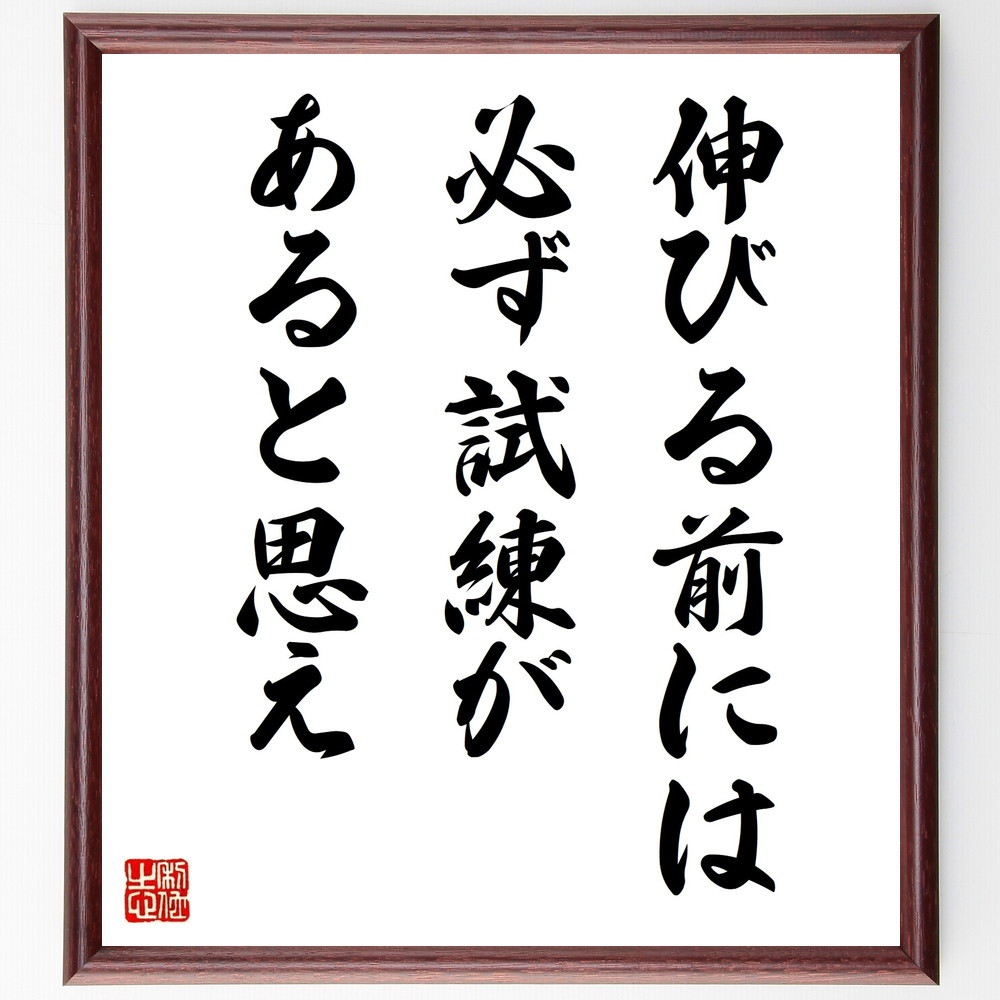 伸びる前には
必ず試練が
あると思え